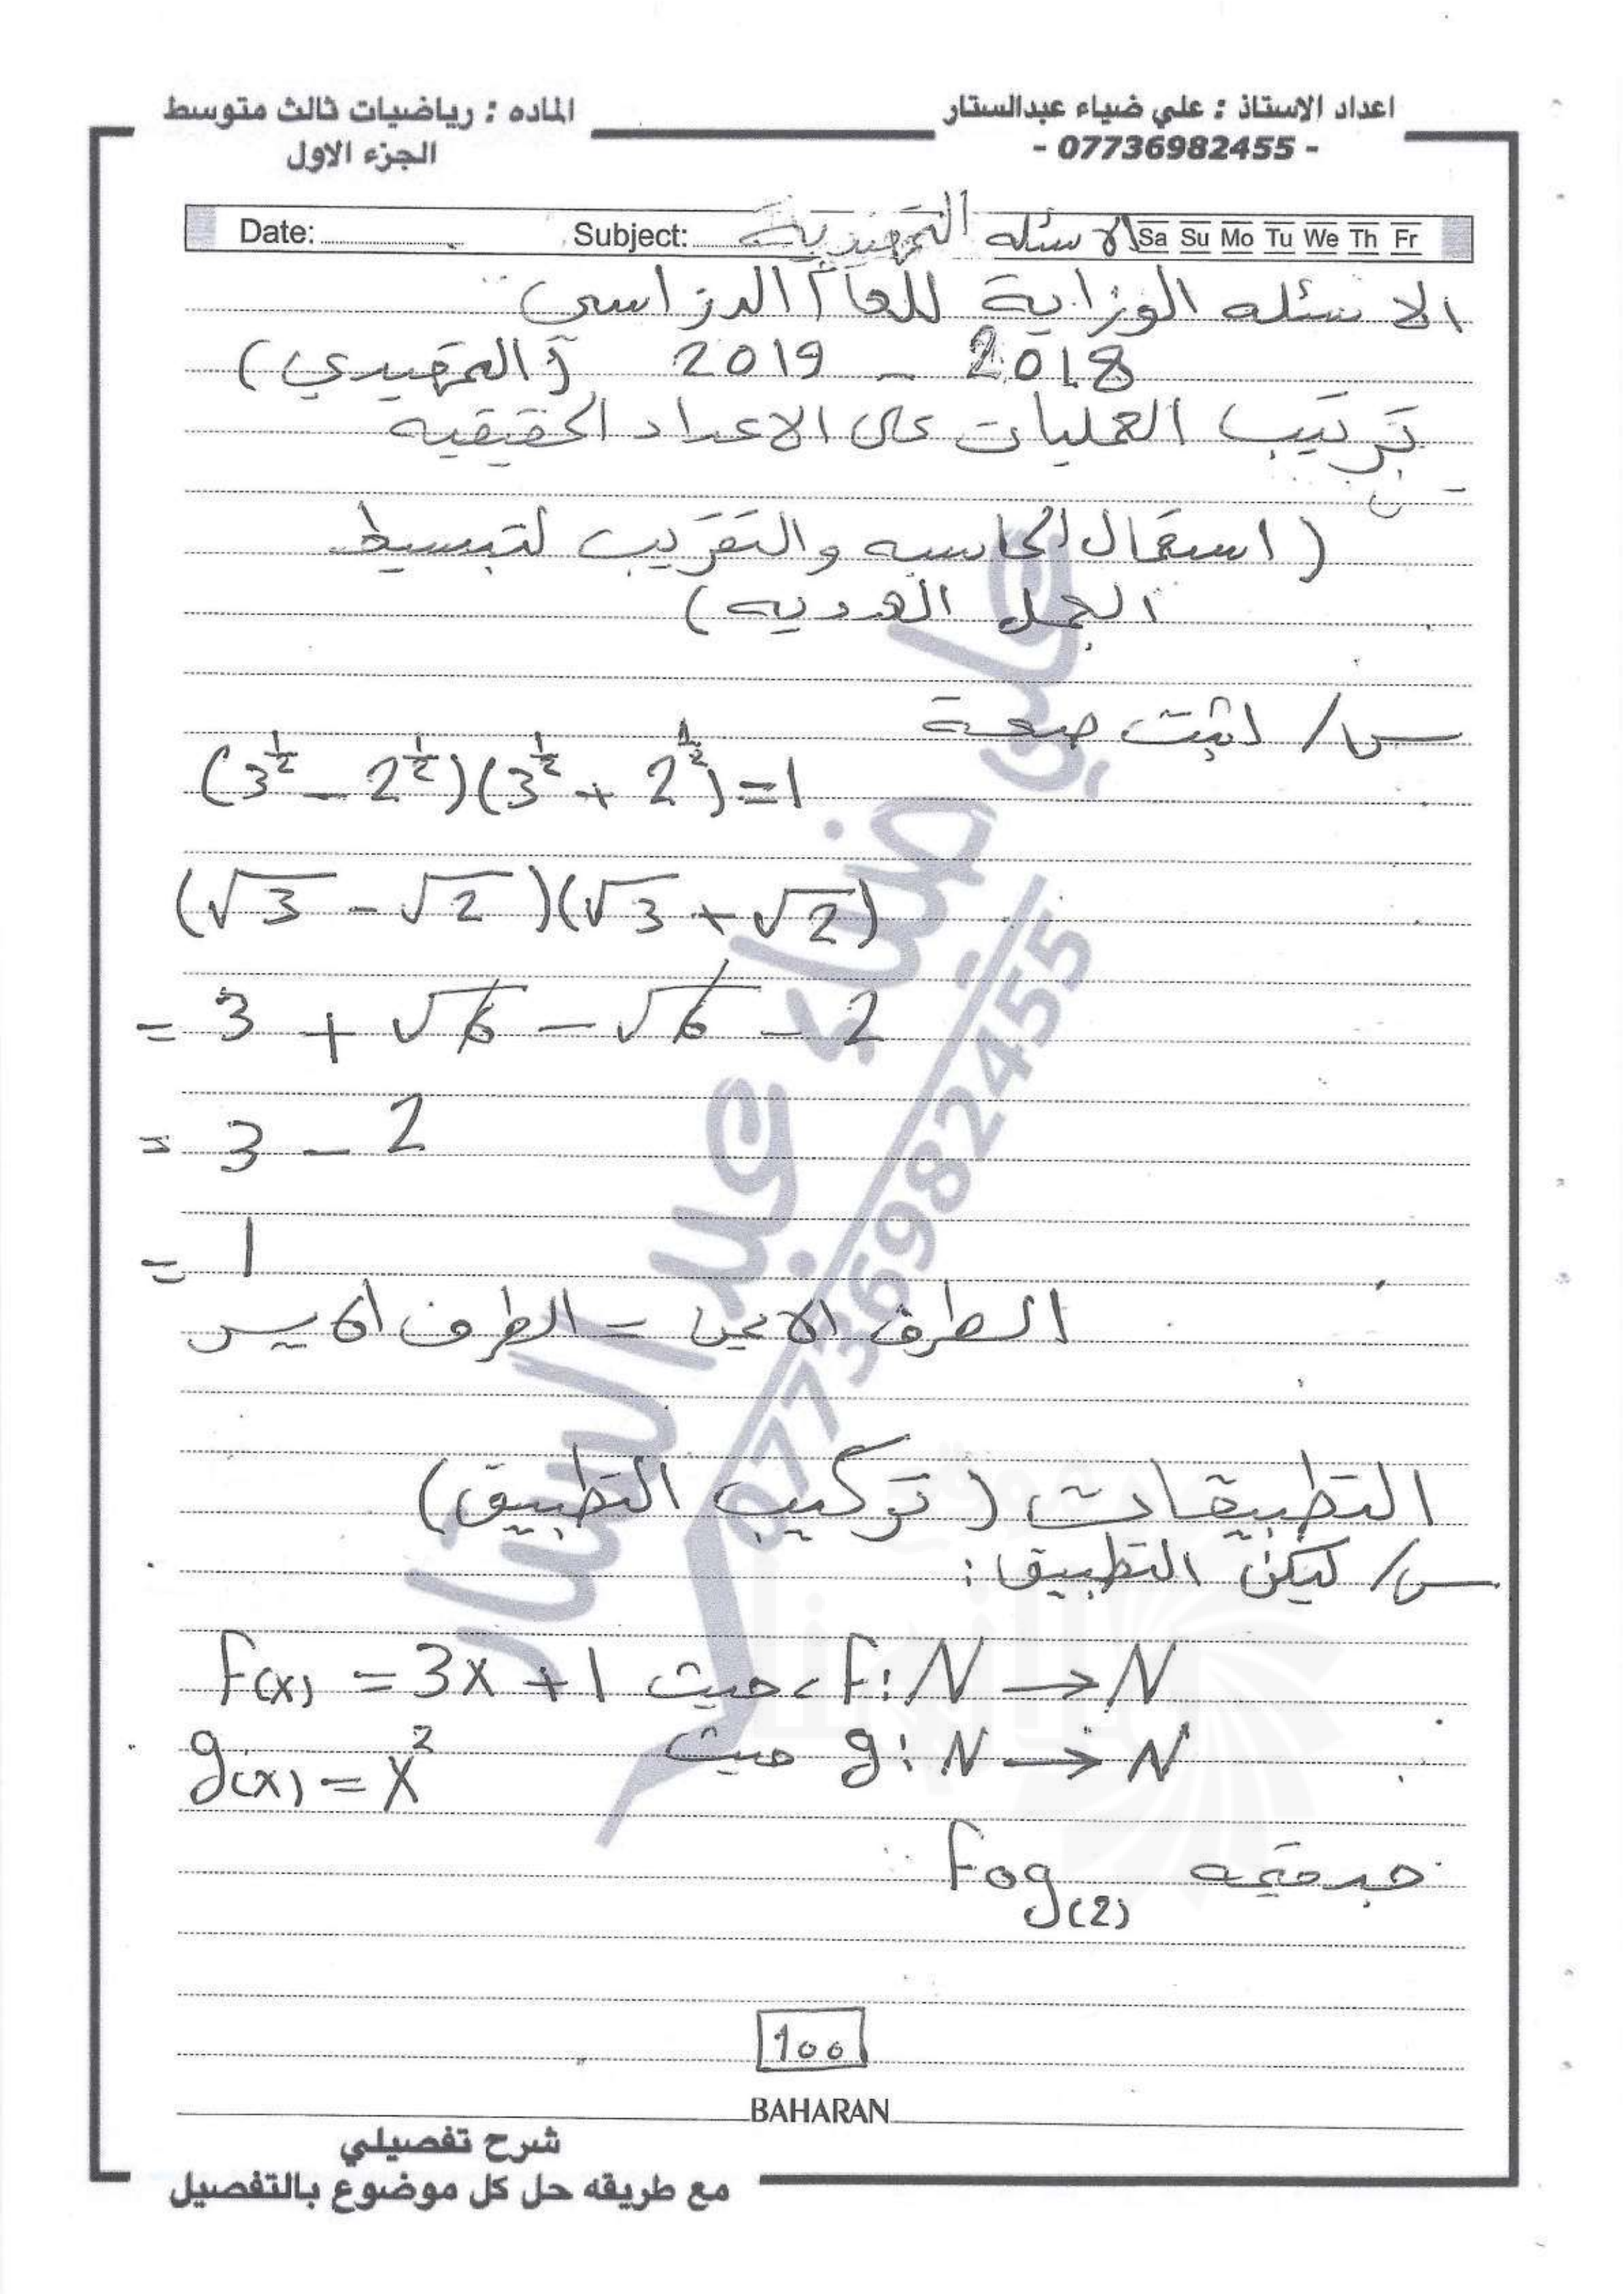 اعداد الاستاذ : علي ضياء عبدالستار
- 07736982455 -
الماده : رياضيات ثالث متوسط
الجزء الاول
Date: Subject: الاسئله التمهيدية Sa Su Mo Tu We Th Fr
الاسئله الوزارية للعام الدراسي
2018 - 2019 (التمهيدي)
ترتيب العمليات على الاعداد الحقيقيه
(استعمال الحاسبه والتقريب لتبسيط
الجمل العدديه)
س/ اثبت صحة
(3^½ - 2^½)(3^½ + 2^½) = 1
(√3 - √2)(√3 + √2)
= 3 + √6 - √6 - 2
= 3 - 2
= 1
الطرف الايمن = الطرف الايسر
التطبيقات (تركيب التطبيق)
س/ ليكن التطبيق :
F: N → N حيث F(x) = 3x + 1
g: N → N حيث g(x) = x²
جد قيمه Fog(2)
100
BAHARAN
شرح تفصيلي
مع طريقه حل كل موضوع بالتفصيل
علي ضياء عبد الستار
07736982455